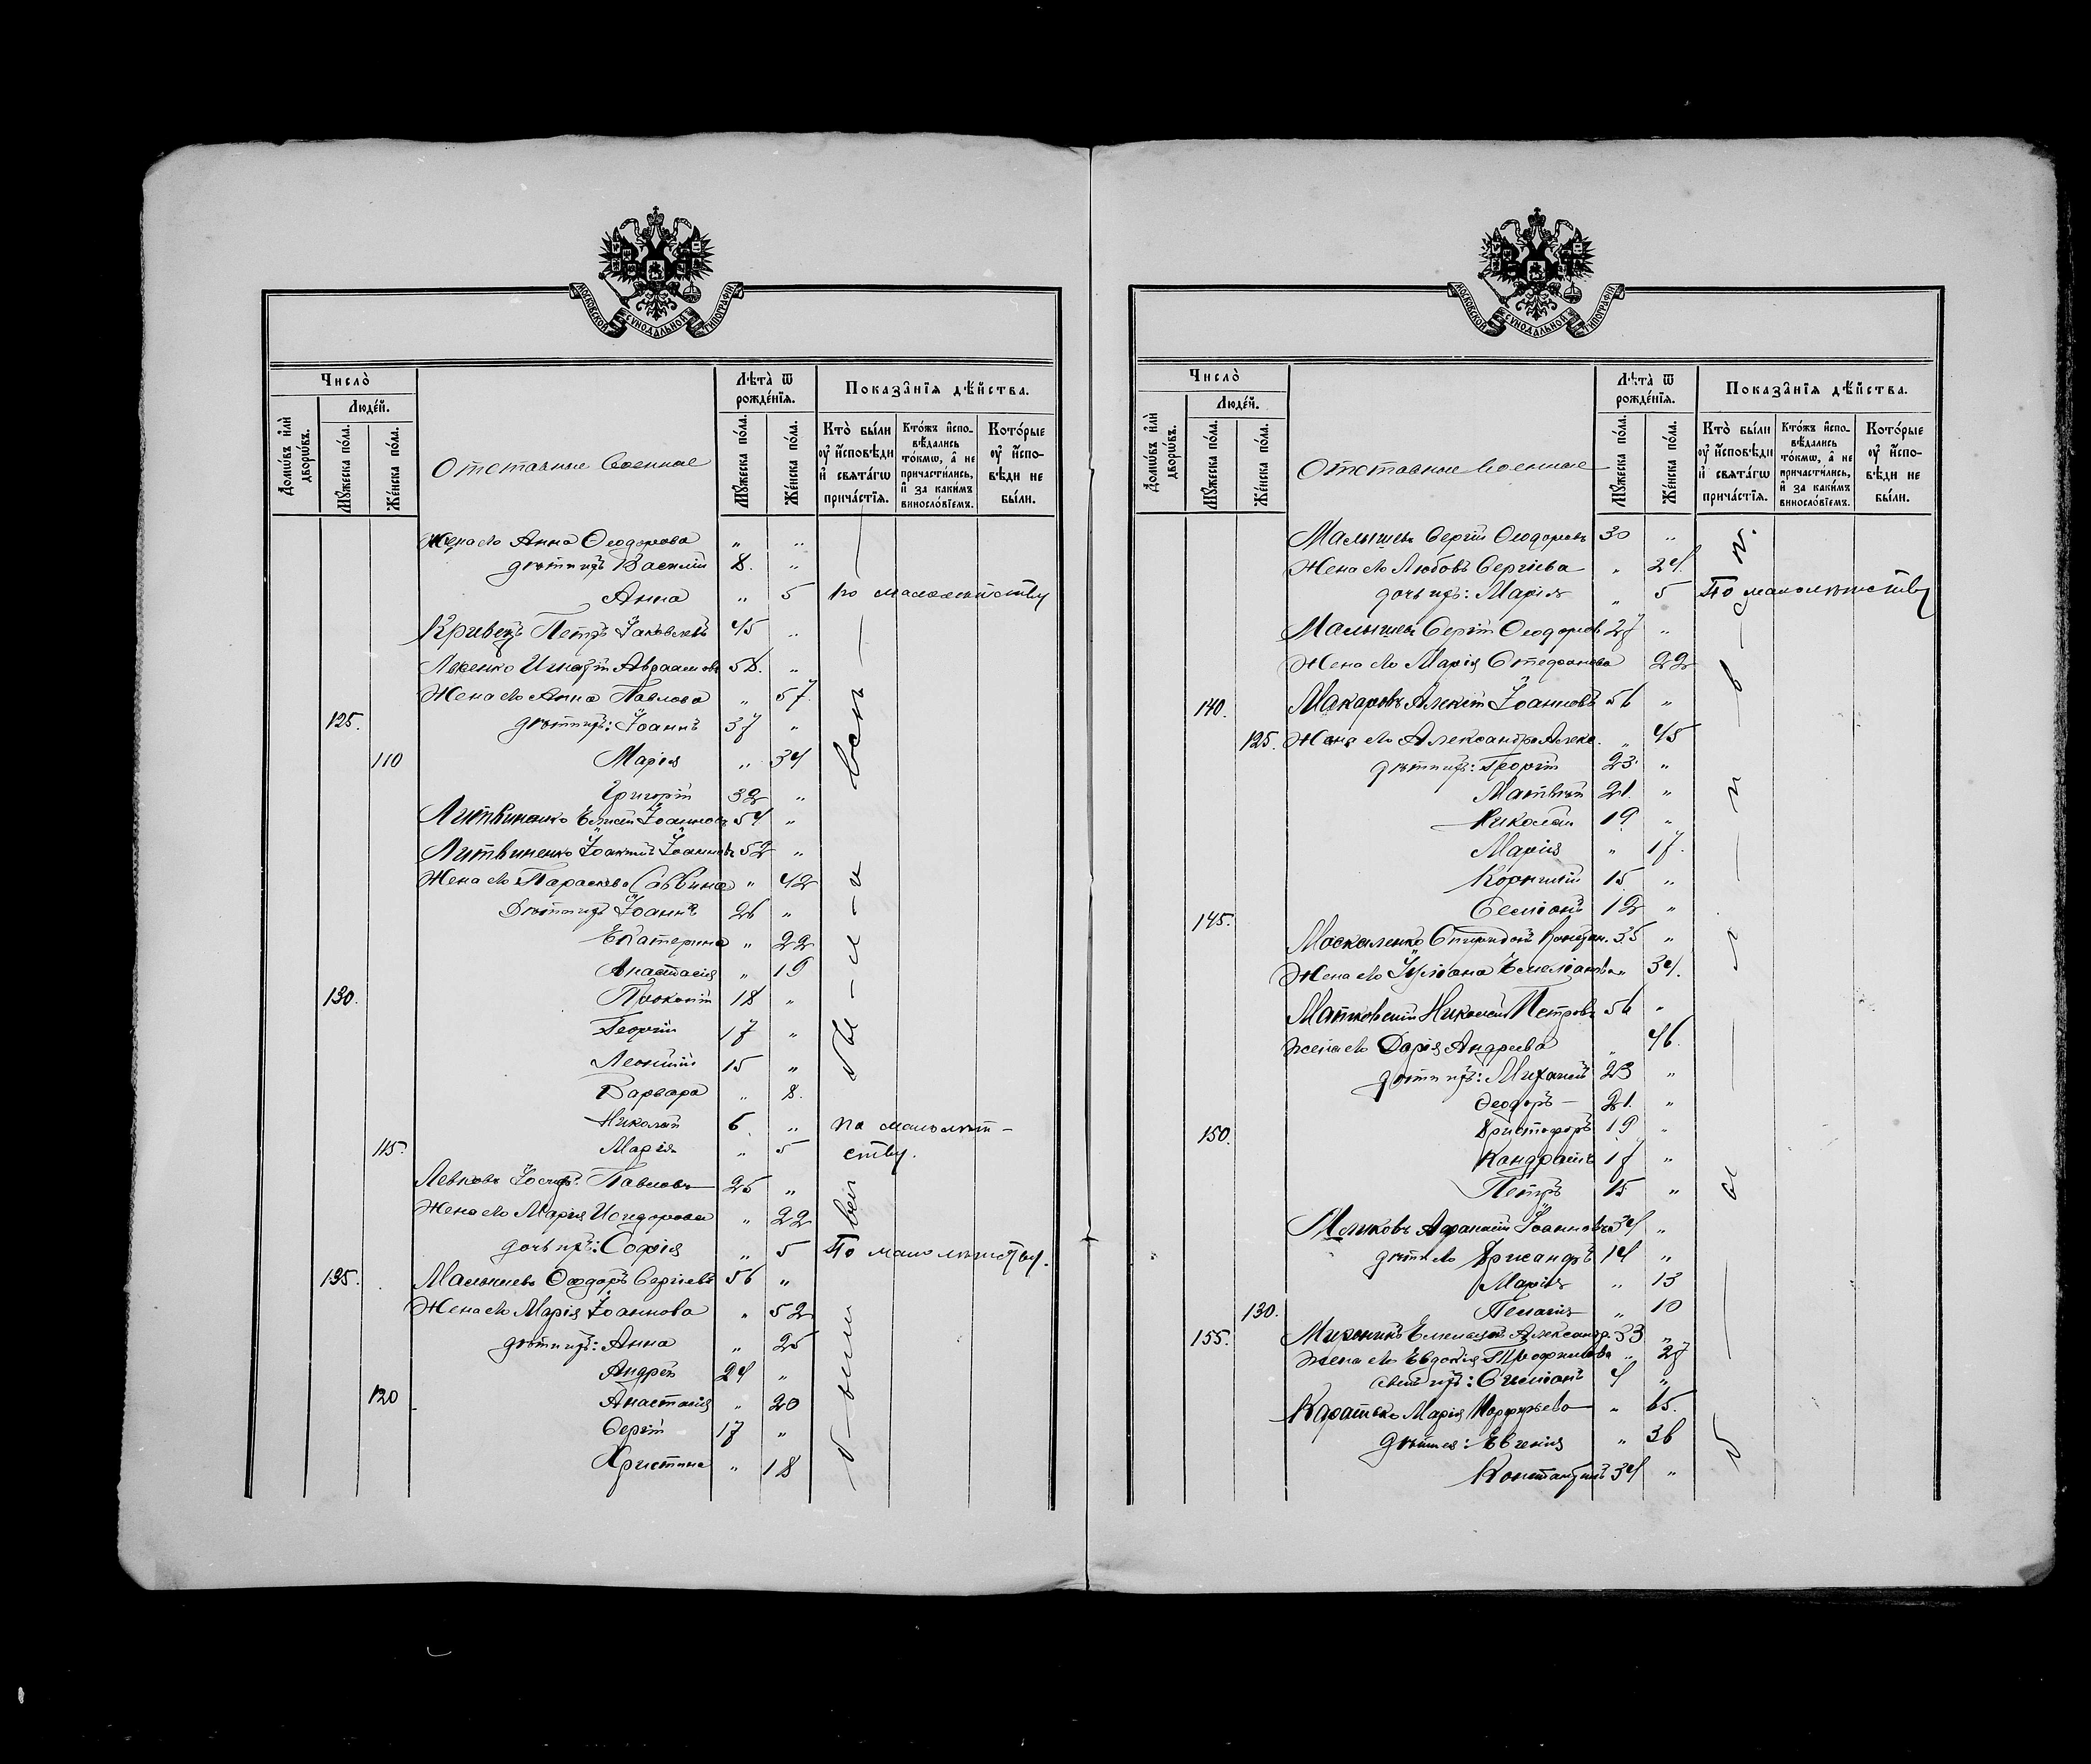 МОСКОВСКОЙ СѴНОДАЛЬНОЙ ТИПОГРАФІИ
Число̀
Домѡ́въ и҆лѝ дворѡ́въ.
Люде́й.
Мꙋ́жеска по́ла.
Же́нска по́ла.
Отставные военные
Лѣ́та ѿ рожде́нїѧ.
Мꙋ́жеска по́ла.
Же́нска по́ла.
Показа̑нїѧ дѣ́йства.
Кто̀ бы́ли оу҆ и҆сповѣ́ди и҆ свѧта́гѡ прича́стїѧ.
Кто́жъ и҆спо-вѣ́дались то́кмѡ, а҆ не причасти́лись, и҆ за каки́мъ винослѡ́вїемъ.
Кото́рые оу҆ и҆спо-вѣ́ди не бы́ли.
Жена его Анна Ѳеодорова " "
дѣти ихъ Василій 8. "
Анна " 5 по малолѣтству
Кривецъ Петръ Іаковлевъ 45 "
Игнатій Авраамовъ 58. "
Жена его Анна Павлова " 57
125. дѣти ихъ: Іоаннъ 37 "
110 Марія " 34
Григорій 32 "
Литвиненко Іоанновъ 54 "
Литвиненко Іоанновъ 52 "
Жена его Параскева Саввина " 42
Дѣти ихъ Іоаннъ 26 "
Екатерина " 22
Анастасія " 19
130. Прокопій 18 "
Георгій 17 "
Леонтій 15 "
Варвара " 8.
Николай 6. " по малолѣт-
115. Марія " 5 ству.
Левковъ Іосифъ Павловъ 25 "
Жена его Марія Исидорова " 22
дочь ихъ: Софія " 5 По малолѣтству.
135. Малышевъ Ѳеодоръ Сергіевъ 56 "
Жена его Марія Іоаннова " 52
дѣти ихъ: Анна " 25
Андрей 24 "
120 Анастасія " 20
Сергій 17 "
Христина " 18
всѣ
бы-ли
всѣ
были
МОСКОВСКОЙ СѴНОДАЛЬНОЙ ТИПОГРАФІИ
Число̀
Домѡ́въ и҆лѝ дворѡ́въ.
Люде́й.
Мꙋ́жеска по́ла.
Же́нска по́ла.
Отставные военные
Лѣ́та ѿ рожде́нїѧ.
Мꙋ́жеска по́ла.
Же́нска по́ла.
Показа̑нїѧ дѣ́йства.
Кто̀ бы́ли оу҆ и҆сповѣ́ди и҆ свѧта́гѡ прича́стїѧ.
Кто́жъ и҆спо-вѣ́дались то́кмѡ, а҆ не причасти́лись, и҆ за каки́мъ винослѡ́вїемъ.
Кото́рые оу҆ и҆спо-вѣ́ди не бы́ли.
Малышевъ Сергій Ѳеодоровъ 30 "
Жена его Любовь Сергіева " 24.
дочь ихъ: Марія " 5 По малолѣтству
Малышевъ Сергій Ѳеодоровъ 27 "
Жена его Марія Стефанова 22
140. Макаровъ Алексій Іоанновъ 56 "
125. Жена его Александра Алекс. " 45
дѣти ихъ: Георгій 23 "
Матвѣй 21 "
Николай 19 "
Марія " 17.
Корнилій 15 "
145. Симеонъ 12 "
Москаленко Спиридонъ 35 "
Жена его Іуліана Емеліанова " 34.
Николай Петровъ 56 "
жена его Дарія Андреева " 46.
дѣти ихъ: Михаилъ 23 "
Ѳеодоръ 21. "
150. Христофоръ 19 "
Кондратъ 17 "
Петръ 15 "
Аѳанасій Іоанновъ 34 "
дѣти его 14 "
Марія " 13
130. Пелагія " 10
155. Александр. 33 "
жена его Евдокія Трофимова " 27
сынъ ихъ: Симеонъ 4 "
Марія " 65.
дѣти ея: Евгенія " 36
Константинъ 34 "